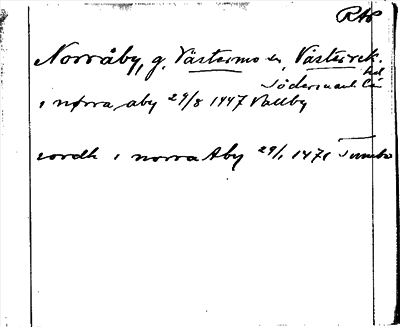 RAP
Norråby, g. Västermo sn, Västerrek. hd
Södermanl. län
i nørra aby 29/8 1447 Vallby
iordh i norra Aby 29/1 1471 Tumbo